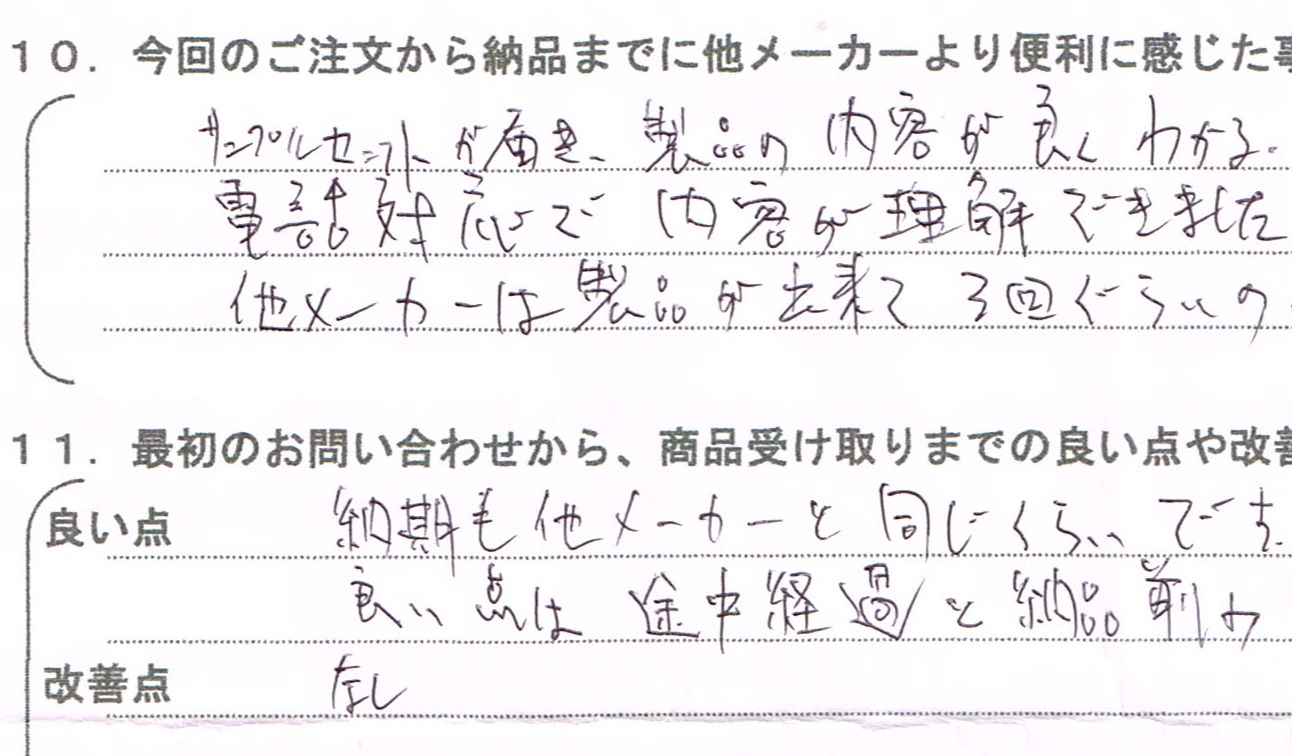 10. 今回のご注文から納品までに他メーカーより便利に感じた事
サンプルセットが届き、製品の内容が良くわかる。
電話対応で内容が理解できました
他メーカーは製品が出来て3回ぐらいの
11. 最初のお問い合わせから、商品受け取りまでの良い点や改善
良い点 納期も他メーカーと同じくらいです。
良い点は途中経過と納品前の
改善点 なし